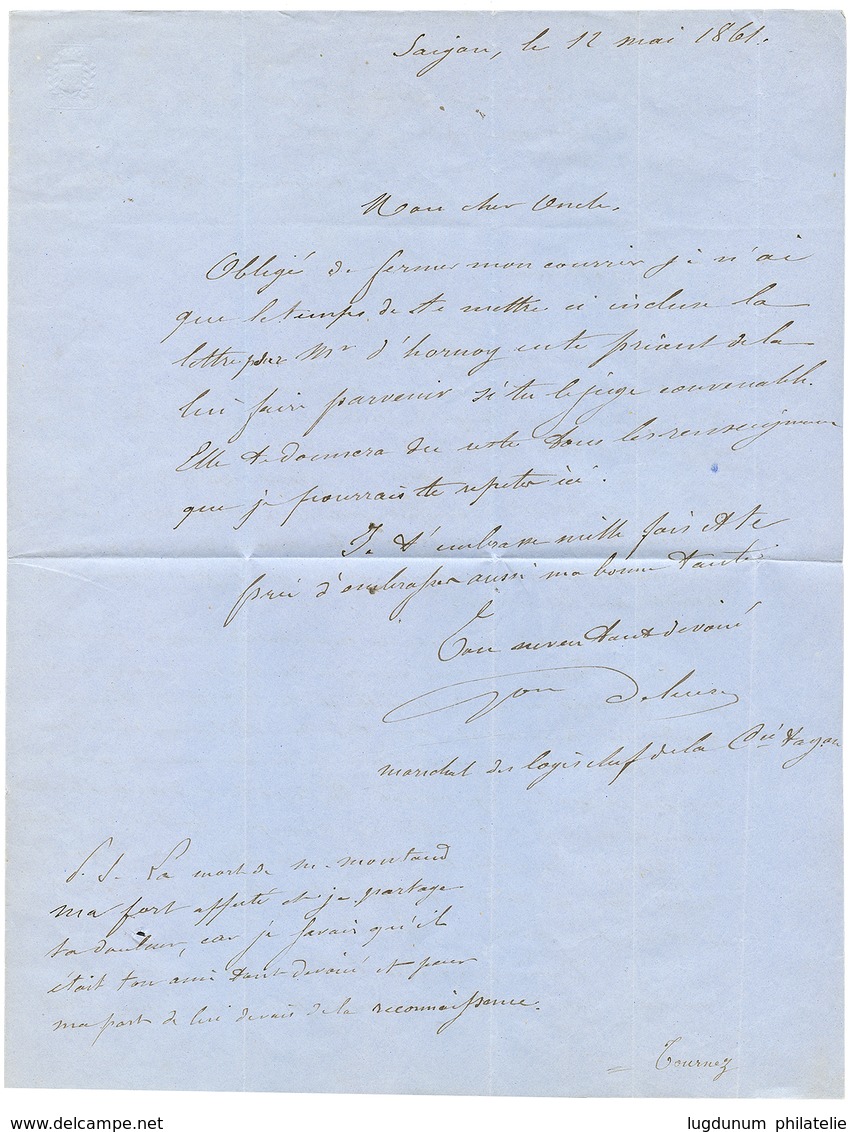 Saigon, le 12 mai 1861.
Mon cher Oncle,
Obligé de fermer mon courrier je n'ai
que le temps de te mettre ci incluse la
lettre pour Mr d'hornoy en te priant de la
lui faire parvenir si tu le juge convenable.
Elle te donnera du reste tous les renseignemens
que je pourrais te repeter ici.
Je t'embrasse mille fois et te
prie d'embrasser aussi ma bonne tante.
Ton neveu tout devoué
marechal des logis chef de la
P. S. La mort de m. montaud
ma fort affecté et je partage
ta douleur, car je savais qu'il
était ton ami tout devoué et pour
ma part je lui devais de la reconnaissance.
= Tournez
www.delcampe.net
lugdunum philatelie